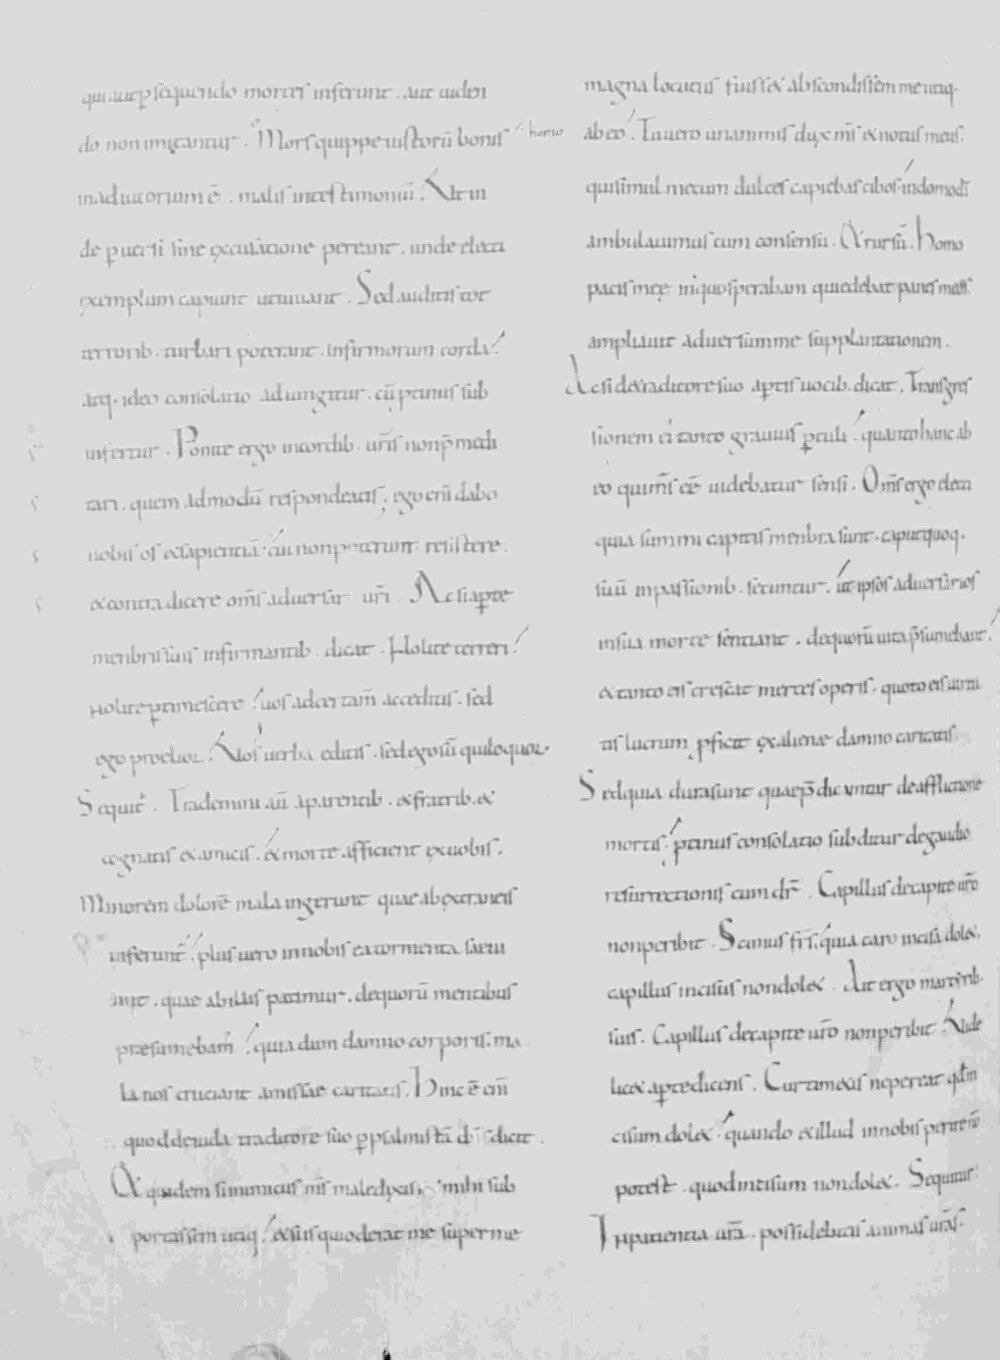 qui aut p̄sequendo mortes inferunt . aut uiden
do non imitantur . Mors quippe iustorū bonis homo
in adiutorium ē . malis in testimoniū . Ut in
de puersi sine excusatione pereant . unde electi
exemplum capiunt ut uiuant . Sed auditis tot
terrorib . turbari poterant . infirmorum corda .
atq . ideo consolatio adiungitur . cū ptinus sub
infertur . Ponite ergo in cordib . uris non p̄medi
tari . quem admodū respondeatis ; ego eni dabo
uobis os & sapientiā . cui non poterunt resistere
& contra dicere oms aduersarii uri . Ac si apte
menbris suis infirmantib . dicat . Nolite terreri .
Nolite ptimescere . uos ad certam̄ acceditis . sed
ego proelior . Uos uerba editis . sed ego sū qui loquor .
Sequit̄ . Trademini aū a parentib . & fratrib . &
cognatis & amicis . & morte afficient ex uobis .
Minorem dolorē mala ingerunt quae ab extraneis
inferunt̄ . plus uero in nobis ea tormenta saeui
unt . quae ab illis patimur . de quorū mentibus
praesumebam̄ . quia cum damno corporis . ma
la nos cruciant amissae caritatis . Hinc ē eni
quod de iuda traditore suo p psalmistā dn̄s dicit .
Et quidem si inimicus ms maledixiss& mihi sub
portassem utiq . & si is qui oderat me super me
magna locutus fuiss& abscondissem me utiq .
ab eo . Tu uero unanimis dux ms & notus meus .
qui simul mecum dulces capiebas cibos . in domo dī
ambulauimus cum consensu . Et rursū . Homo
pacis meę in quo sperabam qui edebat panes meos
ampliauit aduersum me supplantationem .
Ac si de traditore suo aptis uocib . dicat . Transgres
sionem ei tanto grauius p̱tuli . quanto hanc ab
eo qui ms eē uidebatur sensi . Oms ergo electi
quia summi capitis menbra sunt . caput quoq .
suū in passionib . secuntur . ut ipsos aduersarios
in sua morte sentiant . de quorū uita p̄sumebant .
& tanto eis crescat merces operis . quoto eis uirtu
tis lucrum p̱ficit ex alienae damno caritatis .
Sed quia dura sunt quae p̄dicuntur de afflictione
mortis . ptinus consolatio subditur de gaudio
resurrectionis cum dr̄ . Capillus de capite uro
non peribit . Scimus frs . quia caro incisa dol& .
capillus incisus non dol& . Ait ergo martyrib
suis . Capillus de capite uro non peribit . Uide
lic& apte dicens . Cur timetis ne pereat qd in
cisum dol& . quando & illud in nobis perire n̄
potest . quod incisum non dol& . Sequitur .
In patientia ura . possidebitis animas uras .